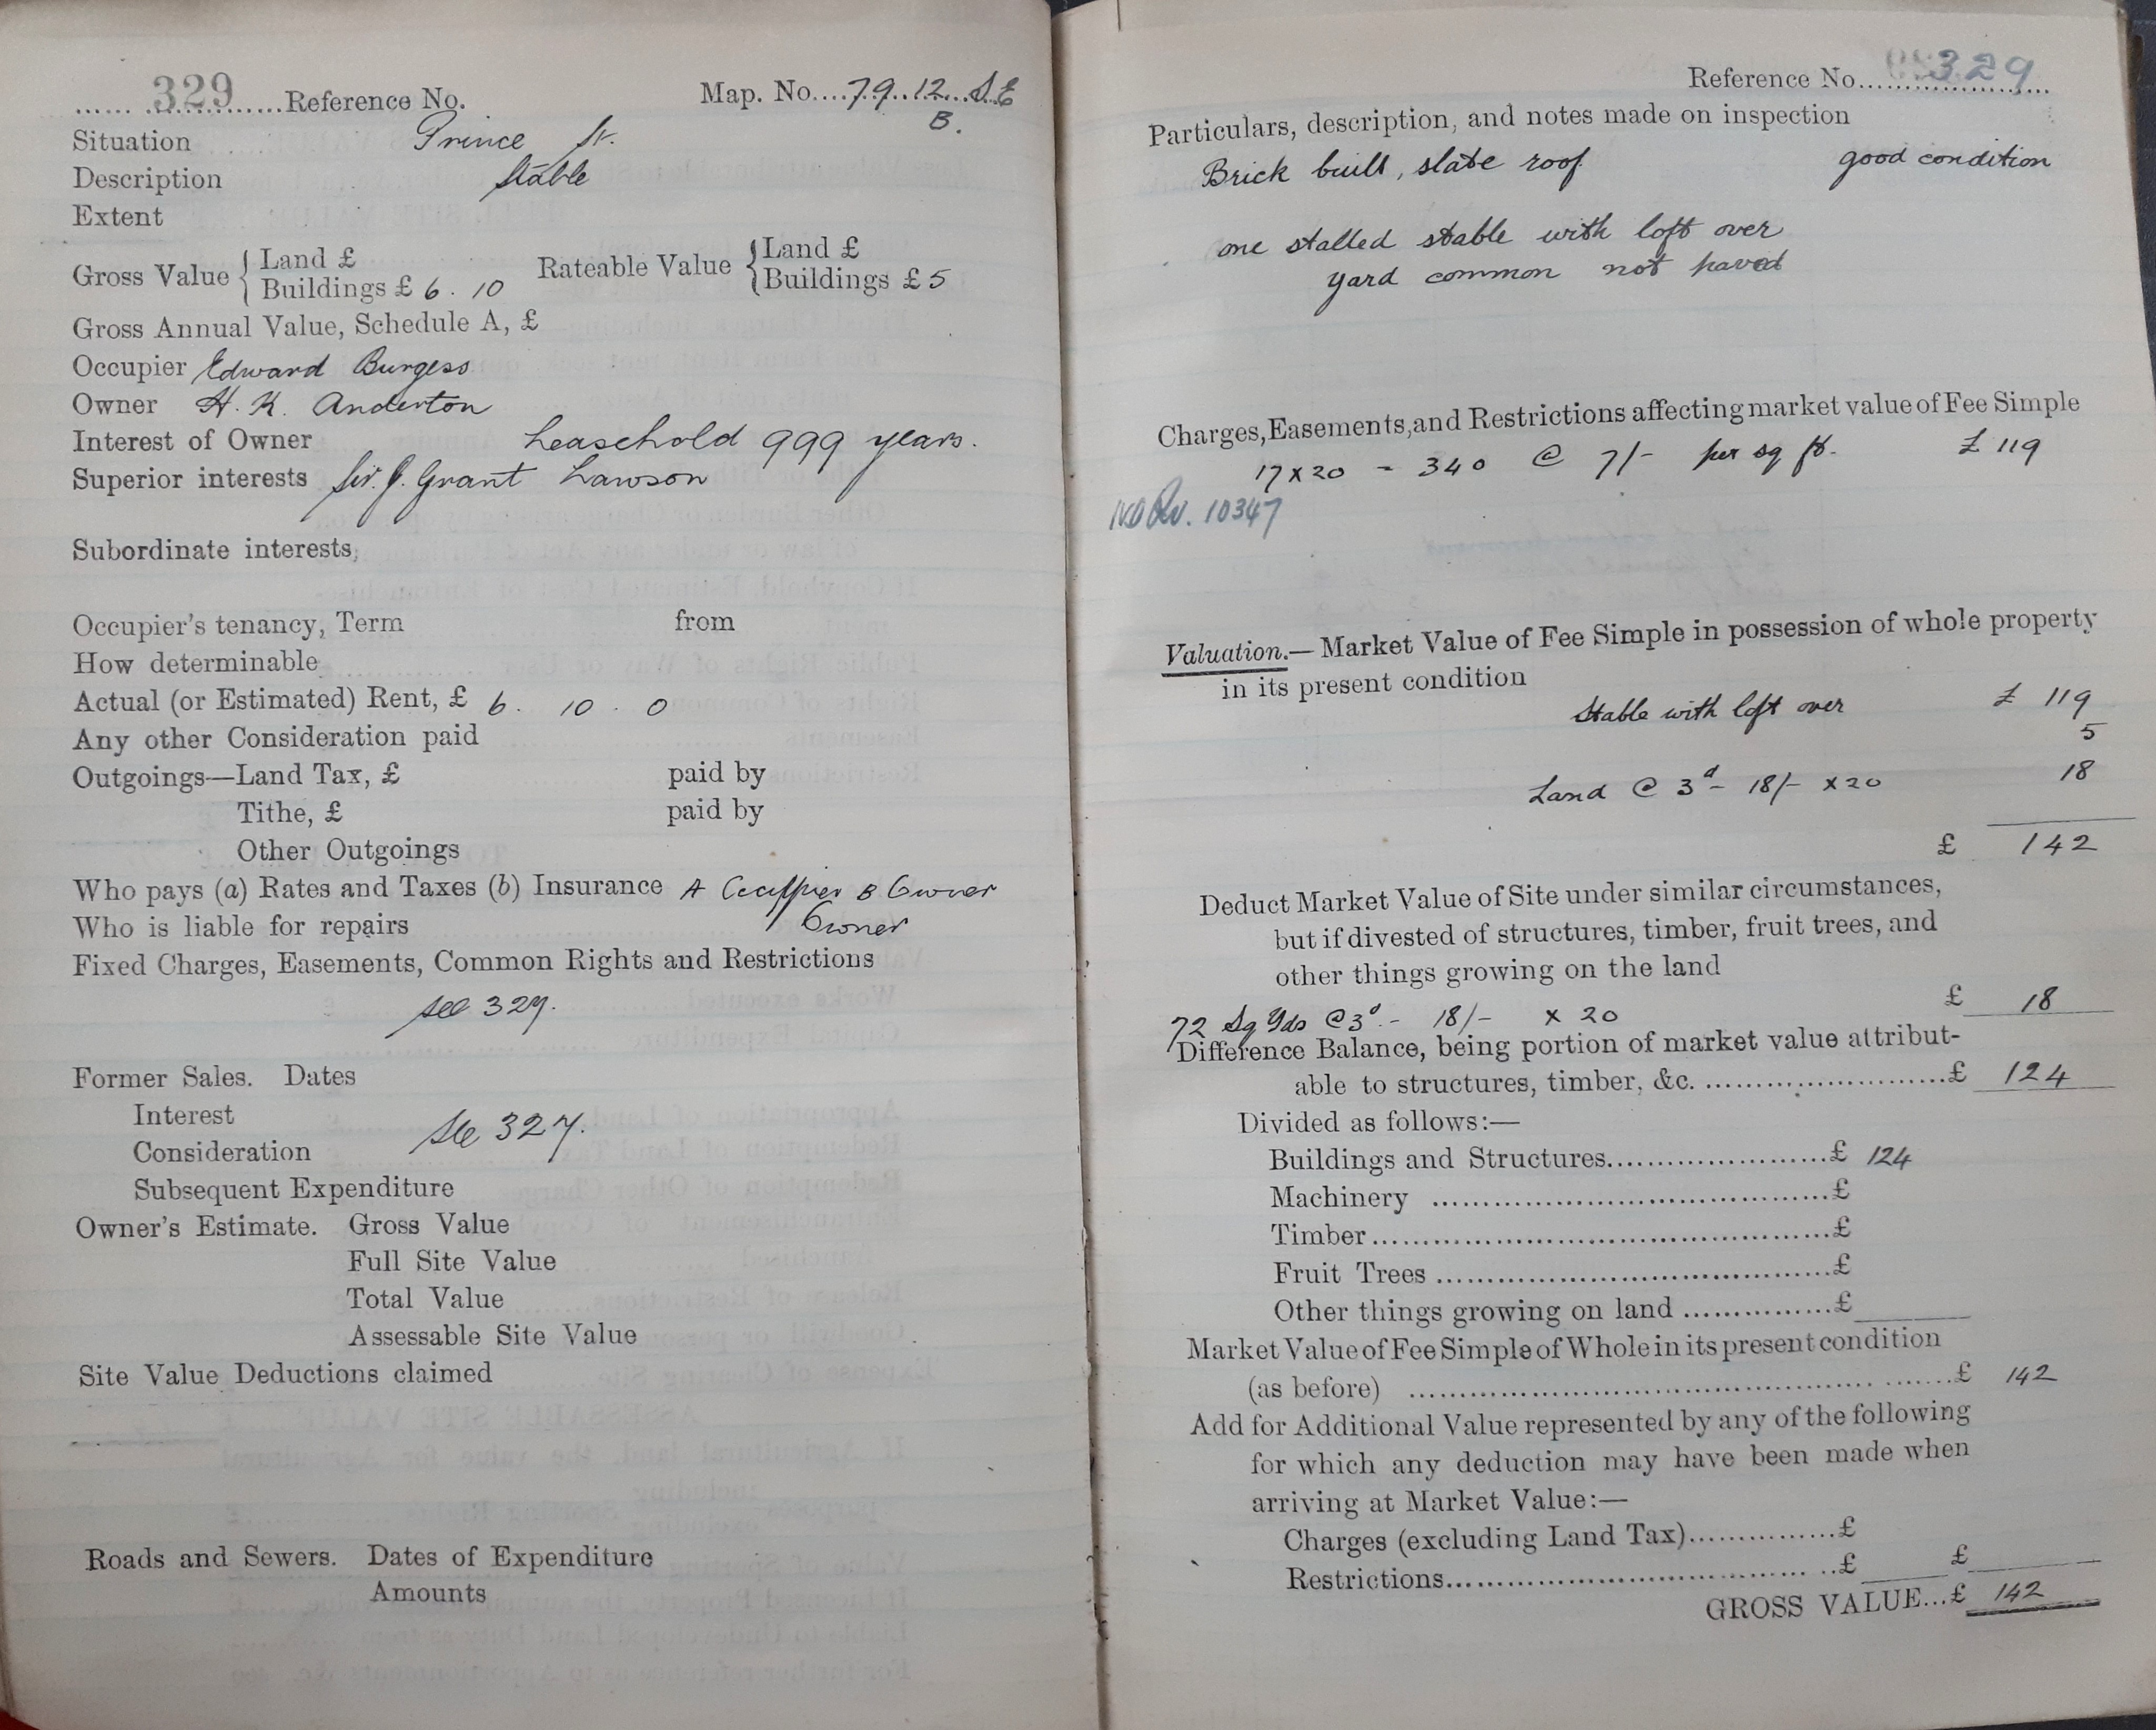 329 Reference No. Map. No. 79. 12. S.E
B.
Situation Prince St.
Description Stable
Extent
Gross Value { Land £
Buildings £ 6 . 10
Rateable Value { Land £
Buildings £ 5
Gross Annual Value, Schedule A, £
Occupier Edward Burgess
Owner H. K. Anderton
Interest of Owner Leasehold 999 years.
Superior interests Sir. J. Grant Lawson
Subordinate interests,
Occupier's tenancy, Term from
How determinable
Actual (or Estimated) Rent, £ 6 . 10 . 0
Any other Consideration paid
Outgoings—Land Tax, £ paid by
Tithe, £ paid by
Other Outgoings
Who pays (a) Rates and Taxes (b) Insurance A Occupier B Owner
Who is liable for repairs Owner
Fixed Charges, Easements, Common Rights and Restrictions
see 327.
Former Sales. Dates
Interest
See 327.
Consideration
Subsequent Expenditure
Owner's Estimate. Gross Value
Full Site Value
Total Value
Assessable Site Value
Site Value Deductions claimed
Roads and Sewers. Dates of Expenditure
Amounts
Reference No. 329
Particulars, description, and notes made on inspection
Brick built, slate roof good condition
one stalled stable with loft over
yard common not paved
Charges, Easements, and Restrictions affecting market value of Fee Simple
17 x 20 - 340 @ 7/- per sq ft. £ 119
10347
Valuation.— Market Value of Fee Simple in possession of whole property
in its present condition
Stable with loft over £ 119
5
Land @ 3d - 18/- x 20 18
£ 142
Deduct Market Value of Site under similar circumstances,
but if divested of structures, timber, fruit trees, and
other things growing on the land
72 Sq Yds @ 3d - 18/- x 20 £ 18
Difference Balance, being portion of market value attribut-
able to structures, timber, &c. £ 124
Divided as follows:—
Buildings and Structures £ 124
Machinery £
Timber £
Fruit Trees £
Other things growing on land £
Market Value of Fee Simple of Whole in its present condition
(as before) £ 142
Add for Additional Value represented by any of the following
for which any deduction may have been made when
arriving at Market Value:—
Charges (excluding Land Tax) £
Restrictions £ £
GROSS VALUE...£ 142